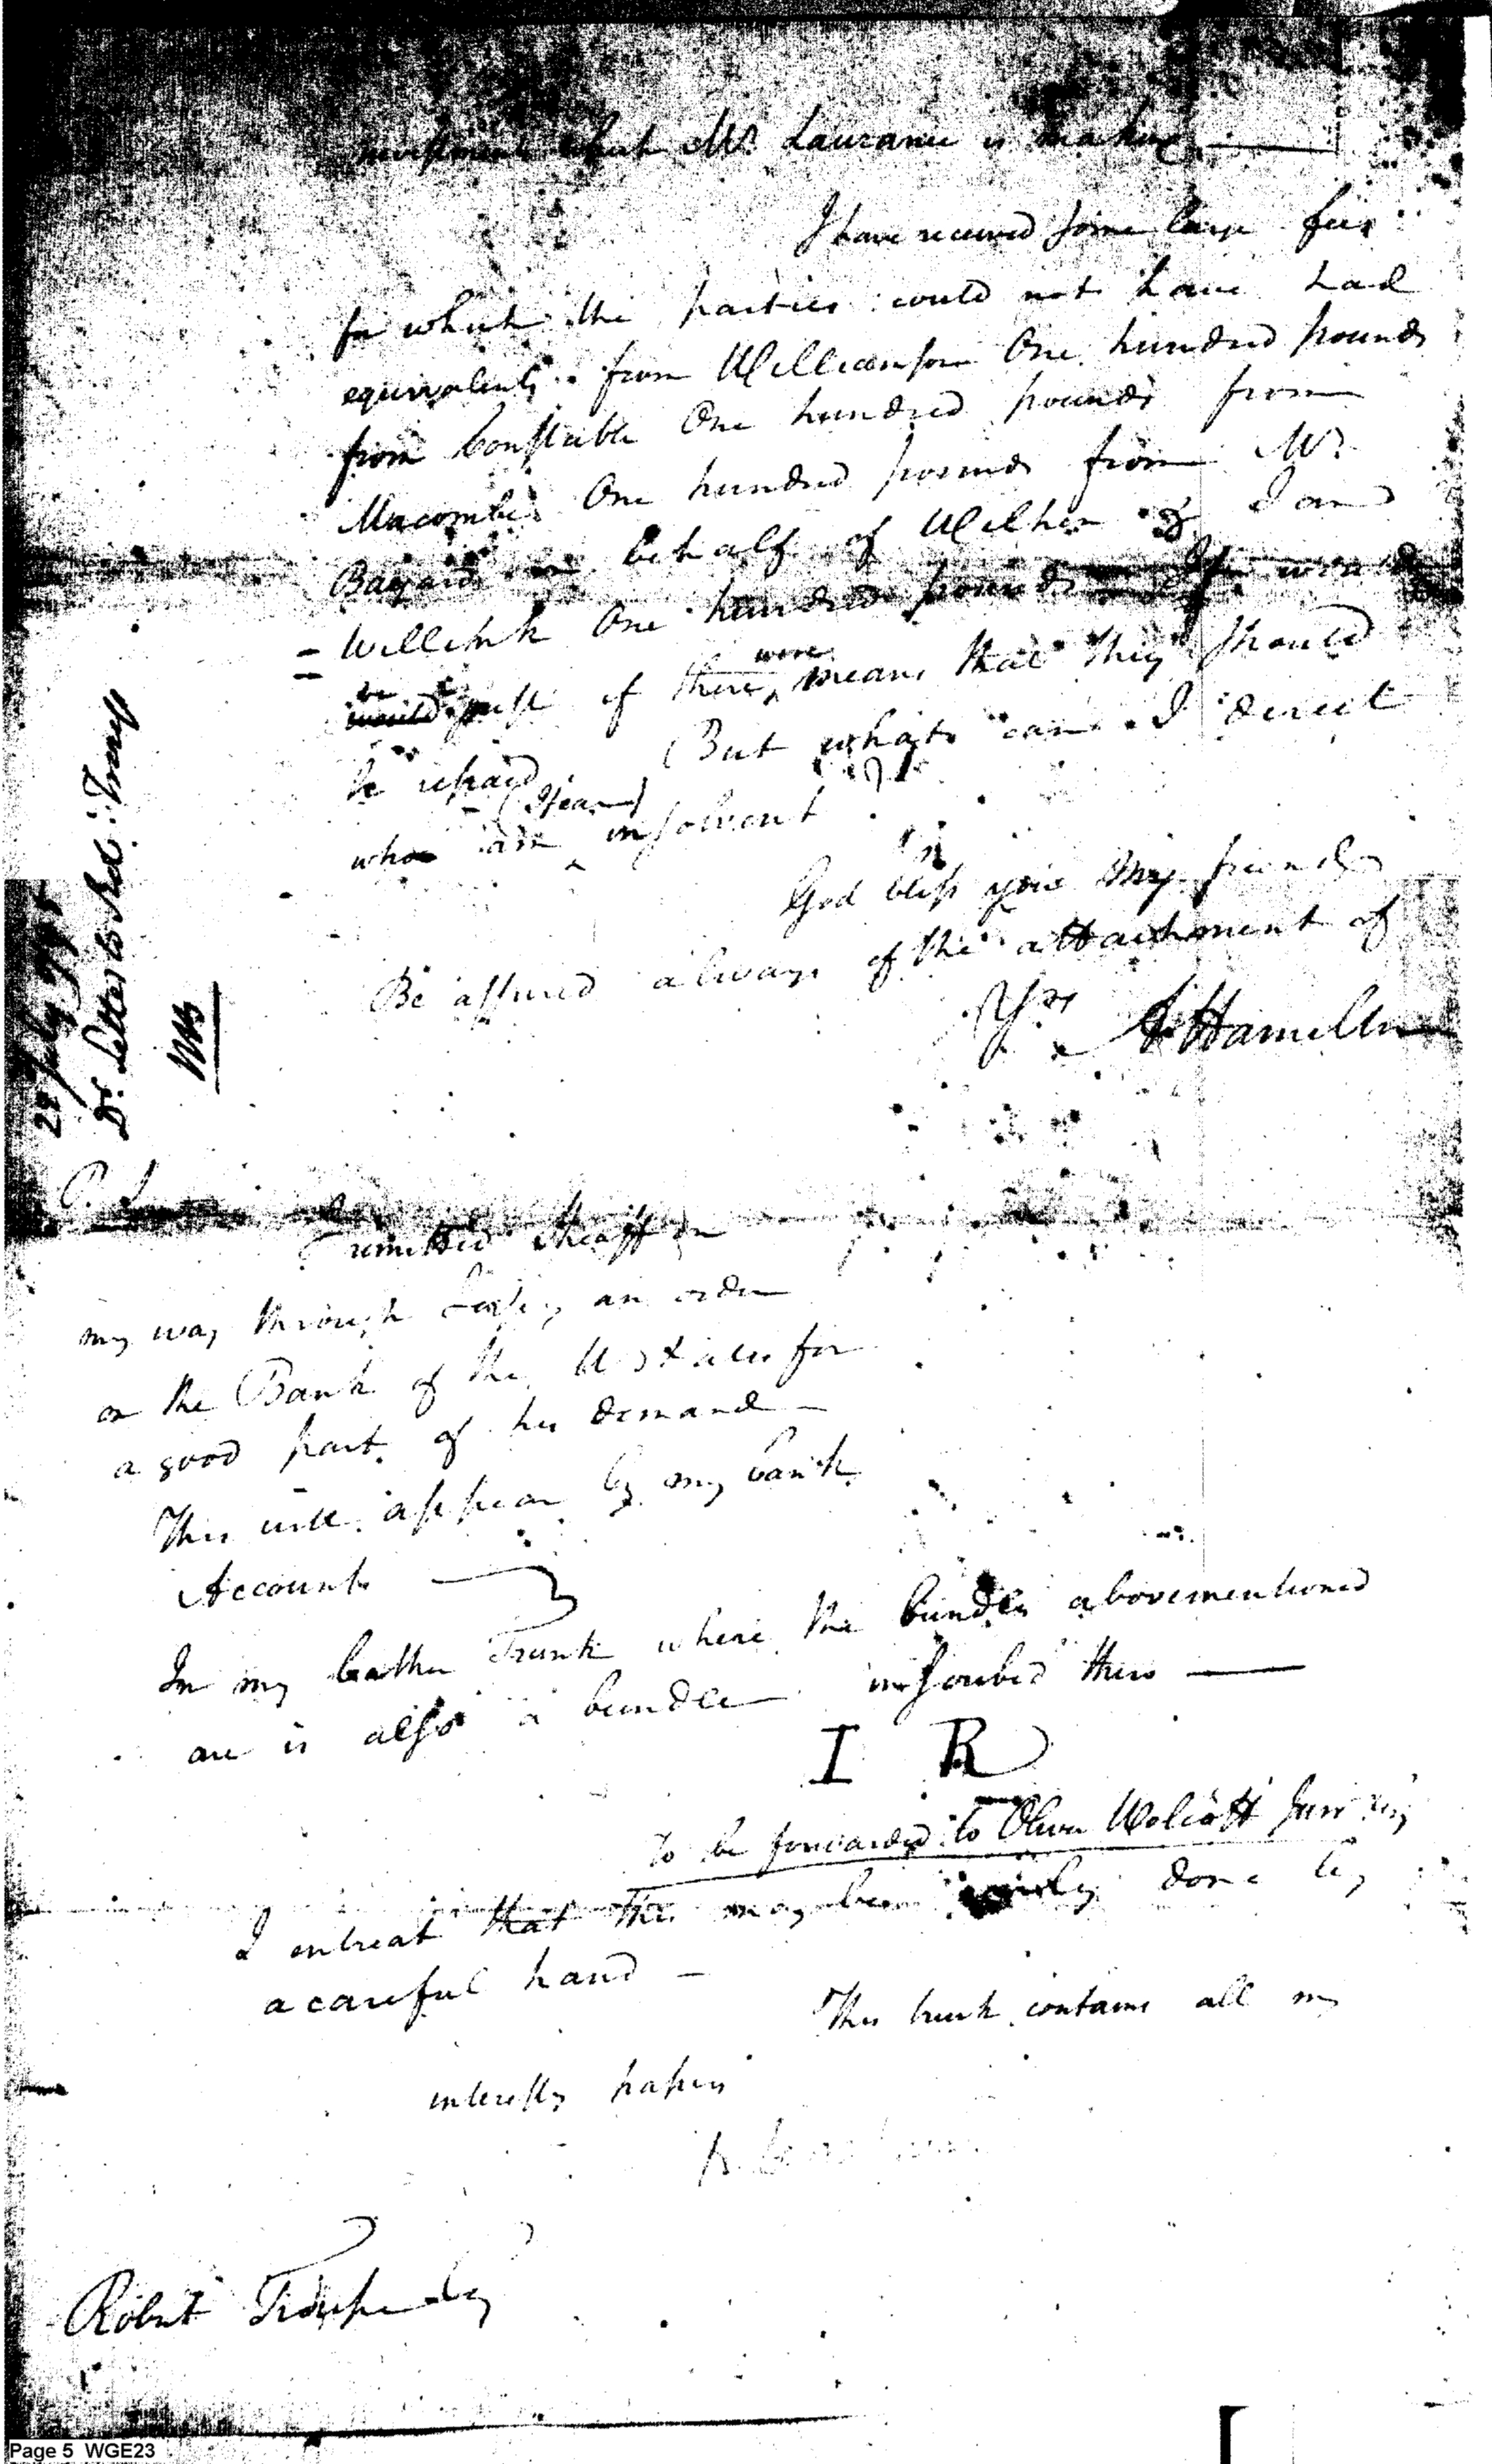 which Mr. Lawrance is making
I have received some large fees
for which the parties could not have had
equivalents from Williamson One hundred pounds
from Constable One hundred pounds from
Macomb One hundred pounds from Mr.
Bayard behalf of Wilhem & Jan
= Willink One hundred pounds It would
be just if there were means that they should
be repaid But what can I direct
who am (I fear) insolvent
God bless you My friend
Be assured always of the attachment of
Yrs A Hamilton
P. S.
remitted Sheaff on
my way through an order
on the Bank of the U States for
a good part of his demand —
This will appear by my bank
Accounts —
In my leather Trunk where the bundles abovementioned
are is also a bundle inscribed thus —
I R
To be forwarded to Oliver Wolcott Junr Esq
I entreat that this may be done by
a careful hand —
This trunk contains all my
interesting papers
Robert Troup Esq
28 July 1795
Page 5 WGE23